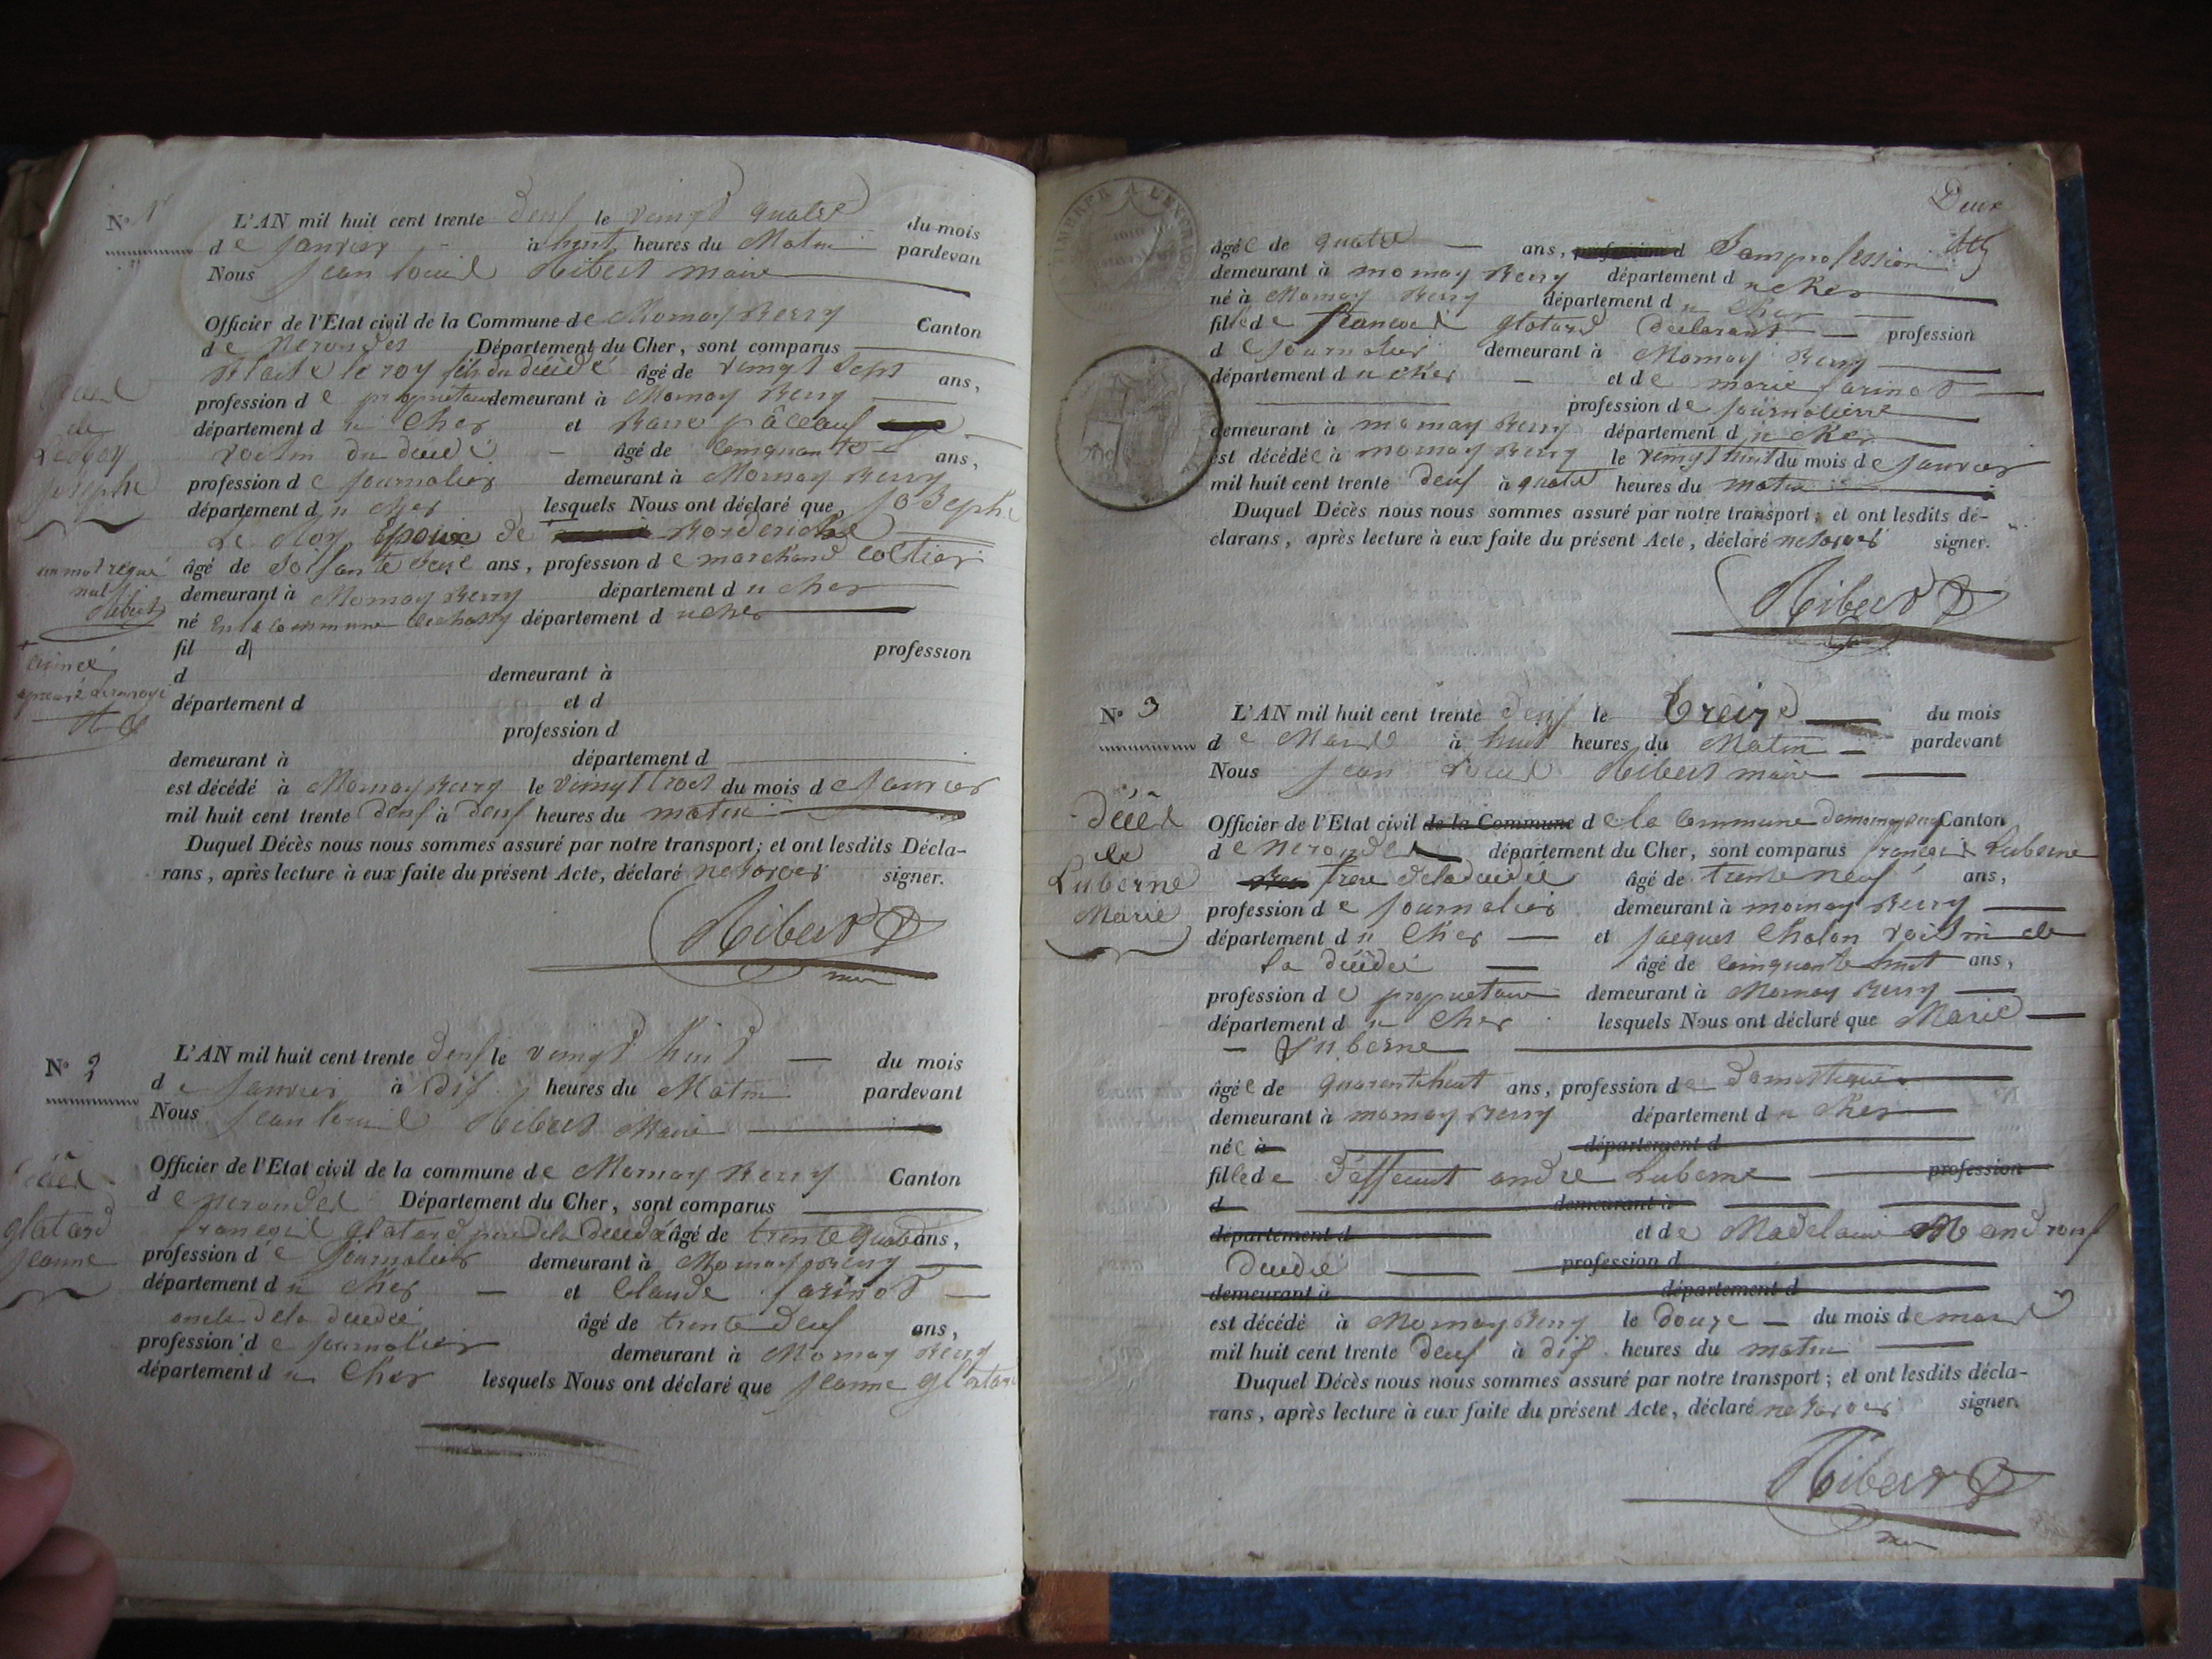 N° 1er
L'AN mil huit cent trente deux le vingt quatre du mois
de janvier à huit heures du Matin pardevan
Nous jean louis Ribert maire
Officier de l'Etat civil de la Commune de Mornay Berry Canton
de Nerondes Département du Cher, sont comparus
le roy fils du décédé âgé de vingt sept ans,
profession de propriétaire demeurant à Mornay Berry
département du Cher et
voisin du décédé âgé de cinquante ans,
profession de journalier demeurant à Mornay Berry
département du cher lesquels Nous ont déclaré que joseph
Le Roy Epoux de
âgé de ans, profession de marchand
demeurant à Mornay Berry département du cher
né En la commune département du cher
fil d profession
d demeurant à
département d et d
profession d
demeurant à département d
est décédé à Mornay Berry le vingt trois du mois de janvier
mil huit cent trente deux à deux heures du matin
Duquel Décès nous nous sommes assuré par notre transport; et ont lesdits Décla-
rans, après lecture à eux faite du présent Acte, déclaré ne savoir signer.
Ribert
de
Leroy
josephe
un mot rayé
nul
Ribert
N° 2
L'AN mil huit cent trente deux le vingt huit du mois
de janvier à dix heures du Matin pardevant
Nous jean louis Ribert Maire
Officier de l'Etat civil de la commune de Mornay Berry Canton
de nerondes Département du Cher, sont comparus
françois glatard père de la décédé âgé de trente quatre ans,
profession de journalier demeurant à Mornay Berry
département du cher et Claude farinot
oncle de la décédée âgé de trente deux ans,
profession de journalier demeurant à Mornay Berry
département du Cher lesquels Nous ont déclaré que jeanne glatard
glatard
jeanne
Deux
âgée de quatre ans, profession d Sans profession
demeurant à mornay Berry département du cher
né à Mornay Berry département du cher
fille de françois glatard déclarant profession
de journalier demeurant à Mornay Berry
département du cher et de marie farinot
profession de journalière
demeurant à mornay Berry département du cher
est décédée à mornay Berry le vingt huit du mois de janvier
mil huit cent trente deux à quatre heures du matin
Duquel Décès nous nous sommes assuré par notre transport; et ont lesdits dé-
clarans, après lecture à eux faite du présent Acte, déclaré ne savoir signer.
Ribert
N° 3
L'AN mil huit cent trente deux le treize du mois
de Mars à huit heures du Matin pardevant
Nous jean louis Ribert maire
Officier de l'Etat civil de la Commune de la commune de mornay Berry Canton
de nerondes département du Cher, sont comparus françois Luberne
frere de la décédée âgé de trente neuf ans,
profession de journalier demeurant à mornay Berry
département du Cher et jacques Chalon voisin de
la décédée âgé de cinquante huit ans,
profession de propriétaire demeurant à Mornay Berry
département du Cher lesquels Nous ont déclaré que Marie
Luberne
âgée de quarante huit ans, profession de domestique
demeurant à mornay Berry département du cher
née à département d
fille de deffeunt andré Luberne profession
d demeurant à
département d et de Madelaine
décédée profession d
demeurant à département d
est décédé à Mornay Berry le douze du mois de mars
mil huit cent trente deux à dix heures du matin
Duquel Décès nous nous sommes assuré par notre transport; et ont lesdits décla-
rans, après lecture à eux faite du présent Acte, déclaré ne savoir signer.
Ribert
décès
de
Luberne
Marie